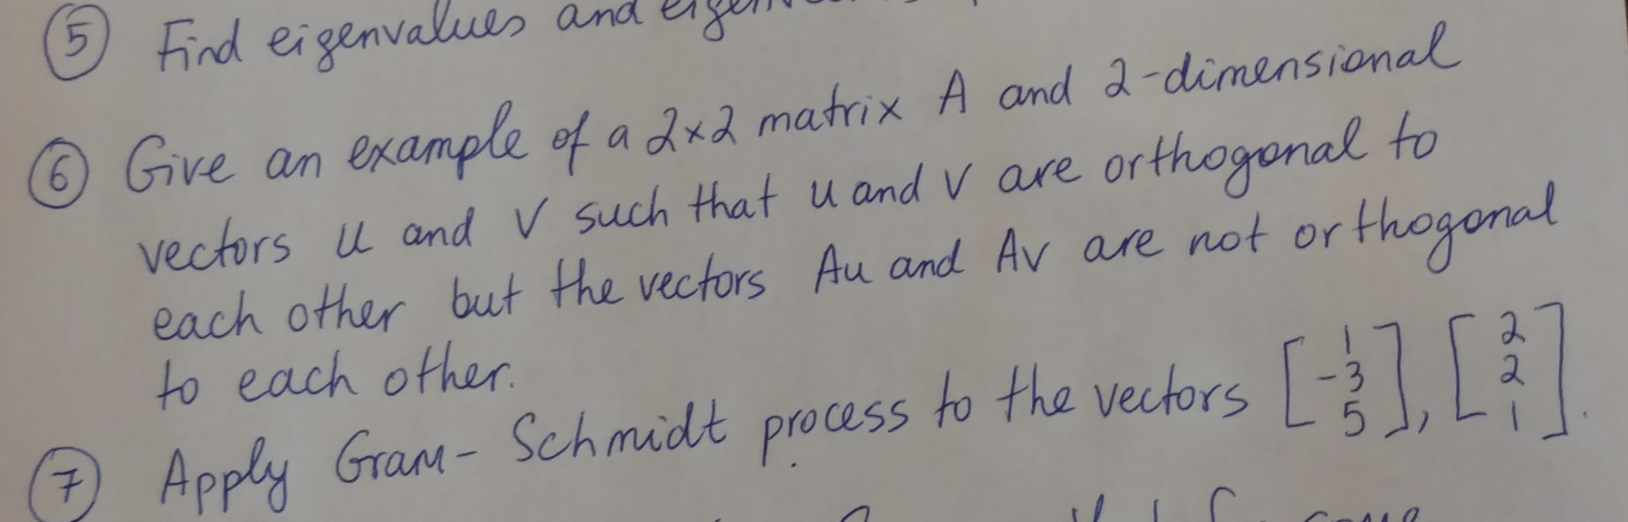 ⑤ Find eigenvalues and
⑥ Give an example of a 2×2 matrix A and 2-dimensional
vectors u and v such that u and v are orthogonal to
each other but the vectors Au and Av are not orthogonal
to each other.
⑦ Apply Gram-Schmidt process to the vectors [1 -3 5], [2 2 1].